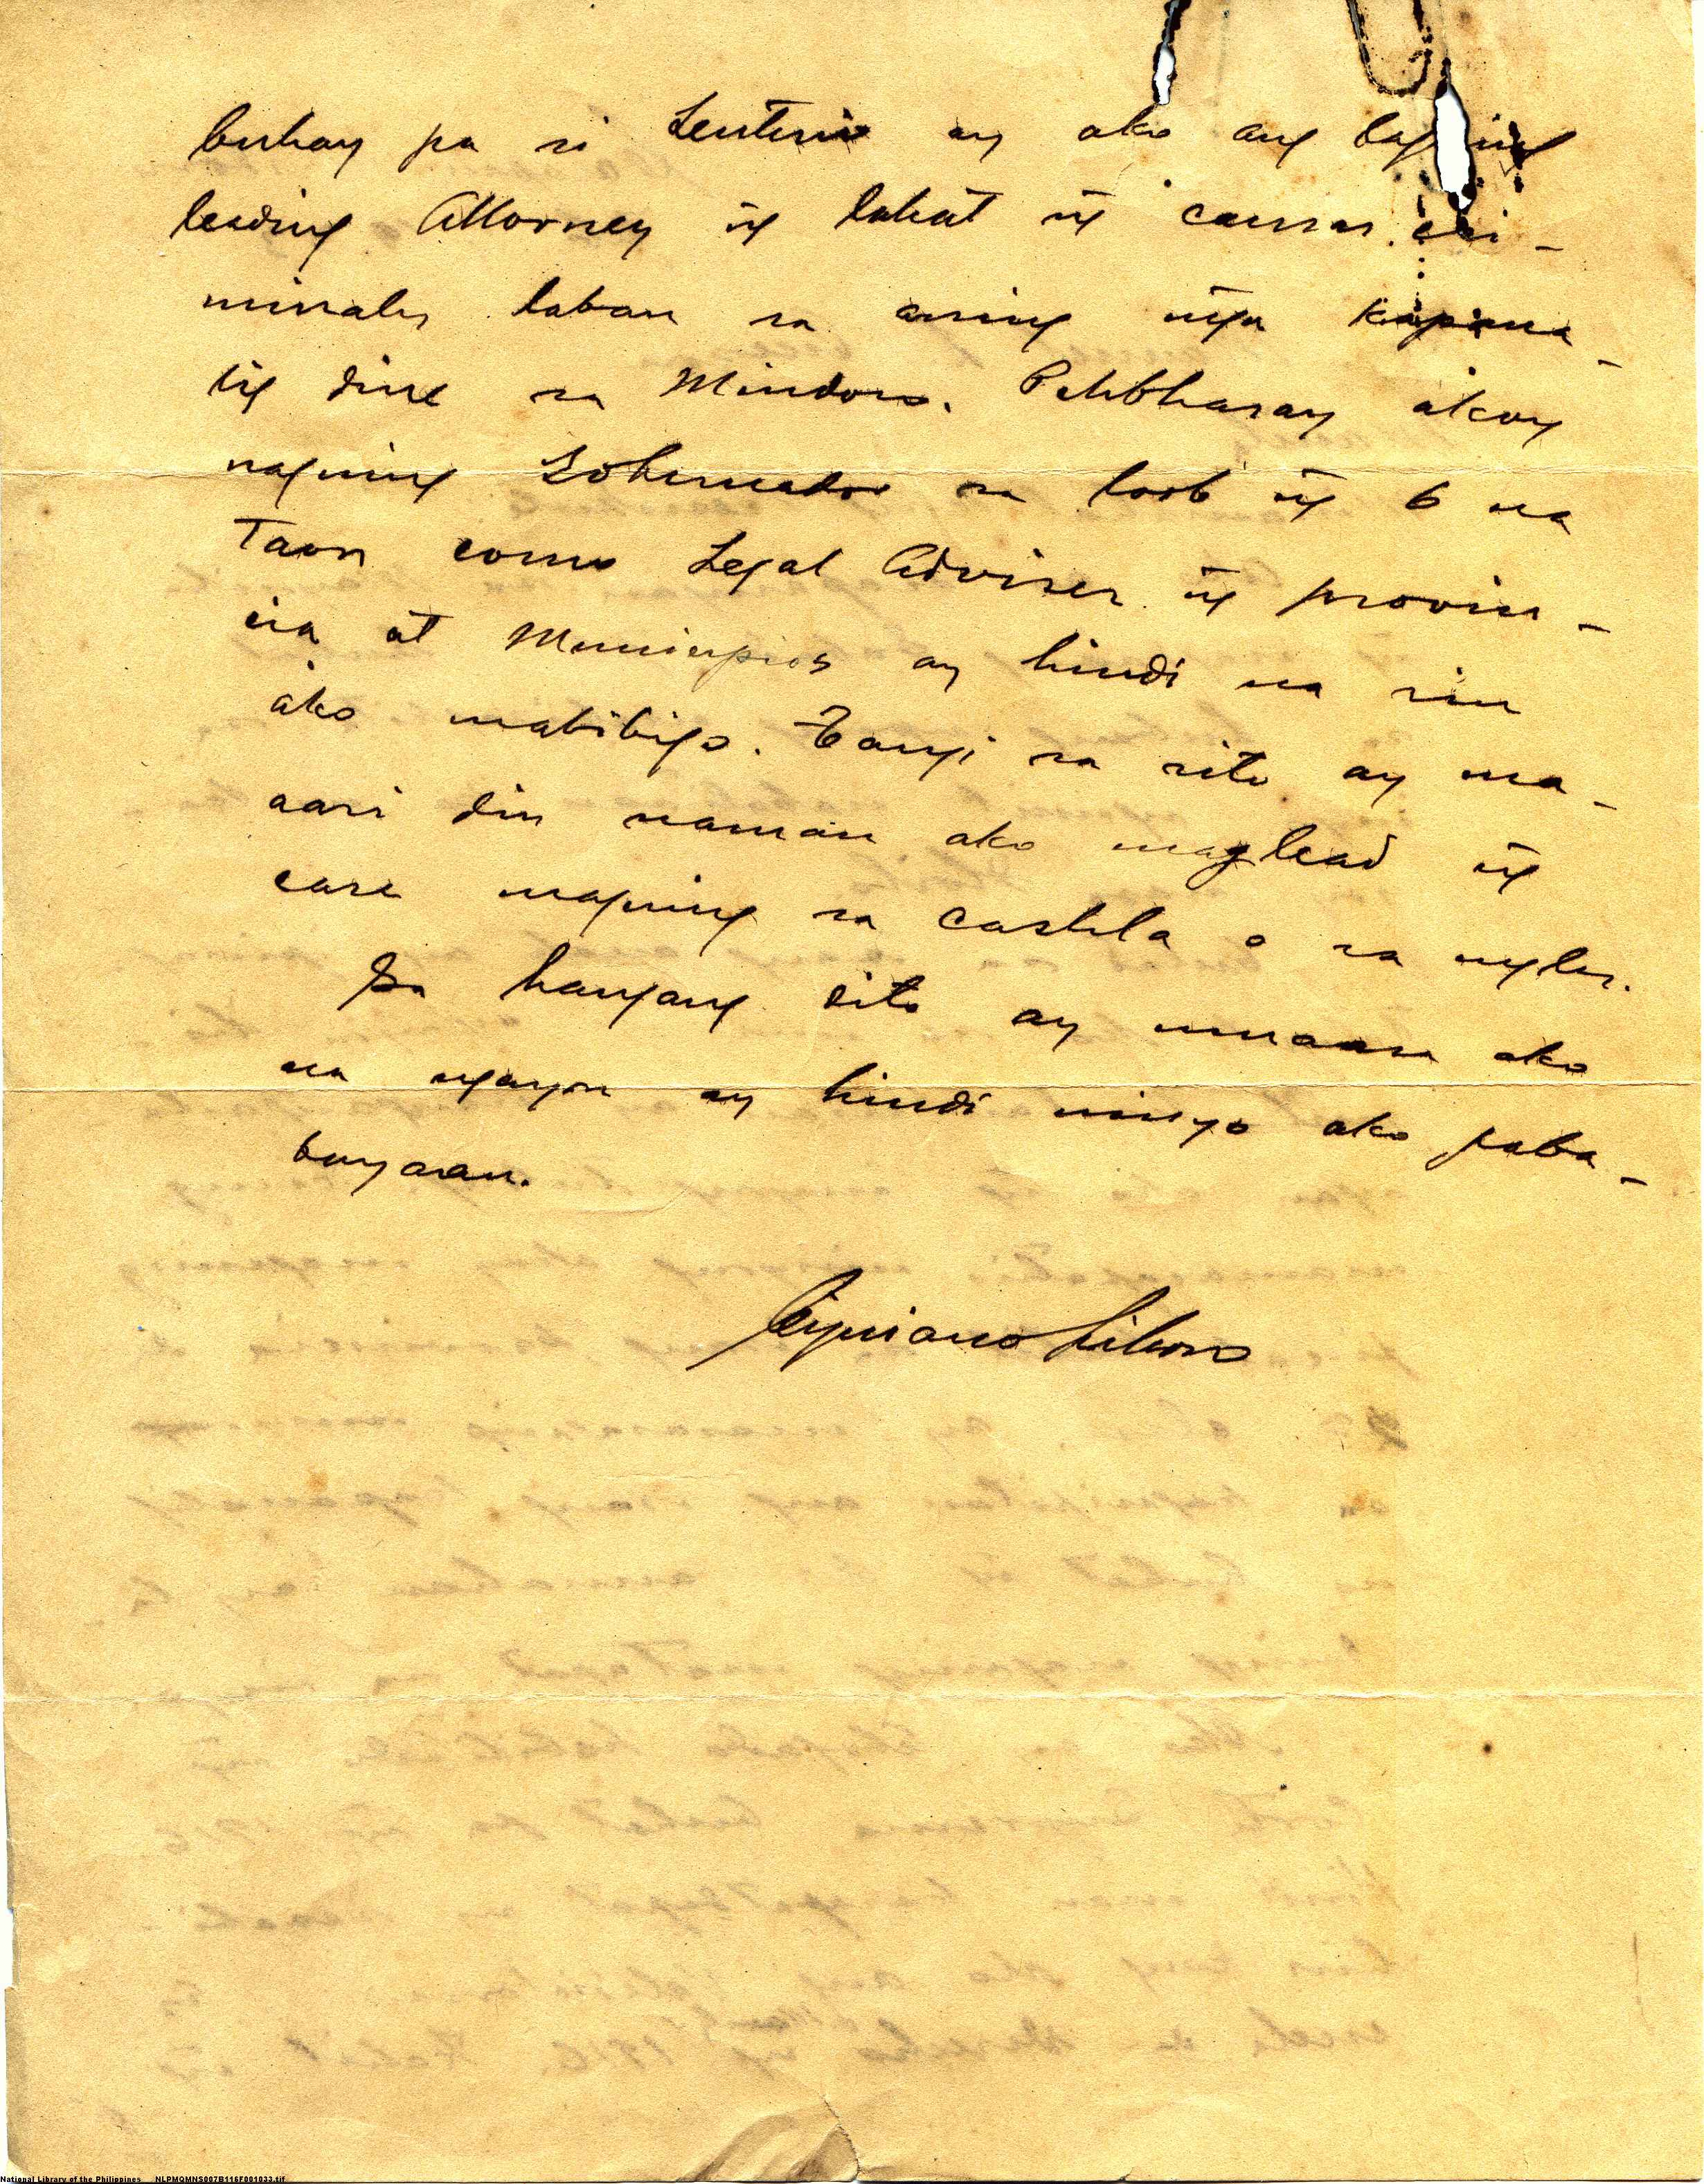 buhay pa si Leuterio ay ako ang naging
leading Attorney ñg lahat ñg causas cri-
minales laban sa aming mga kapana-
lig dine sa Mindoro. Palibhasay akoy
naguing Gobernador sa loob ñg 6 na
Taon como Legal Adviser ñg provin-
cia at Municipios ay hindi na rin
ako mabibigo. Tangi sa rito ay ma-
aari din naman ako maglead ñg
case maguing sa castila o sa ingles.
Sa hangang dito ay umaasa ako
na ngayon ay hindi ninyo ako paba-
bayaan.
Cipriano Liboro
National Library of the Philippines NLPMQMNS007B116F001033.tif